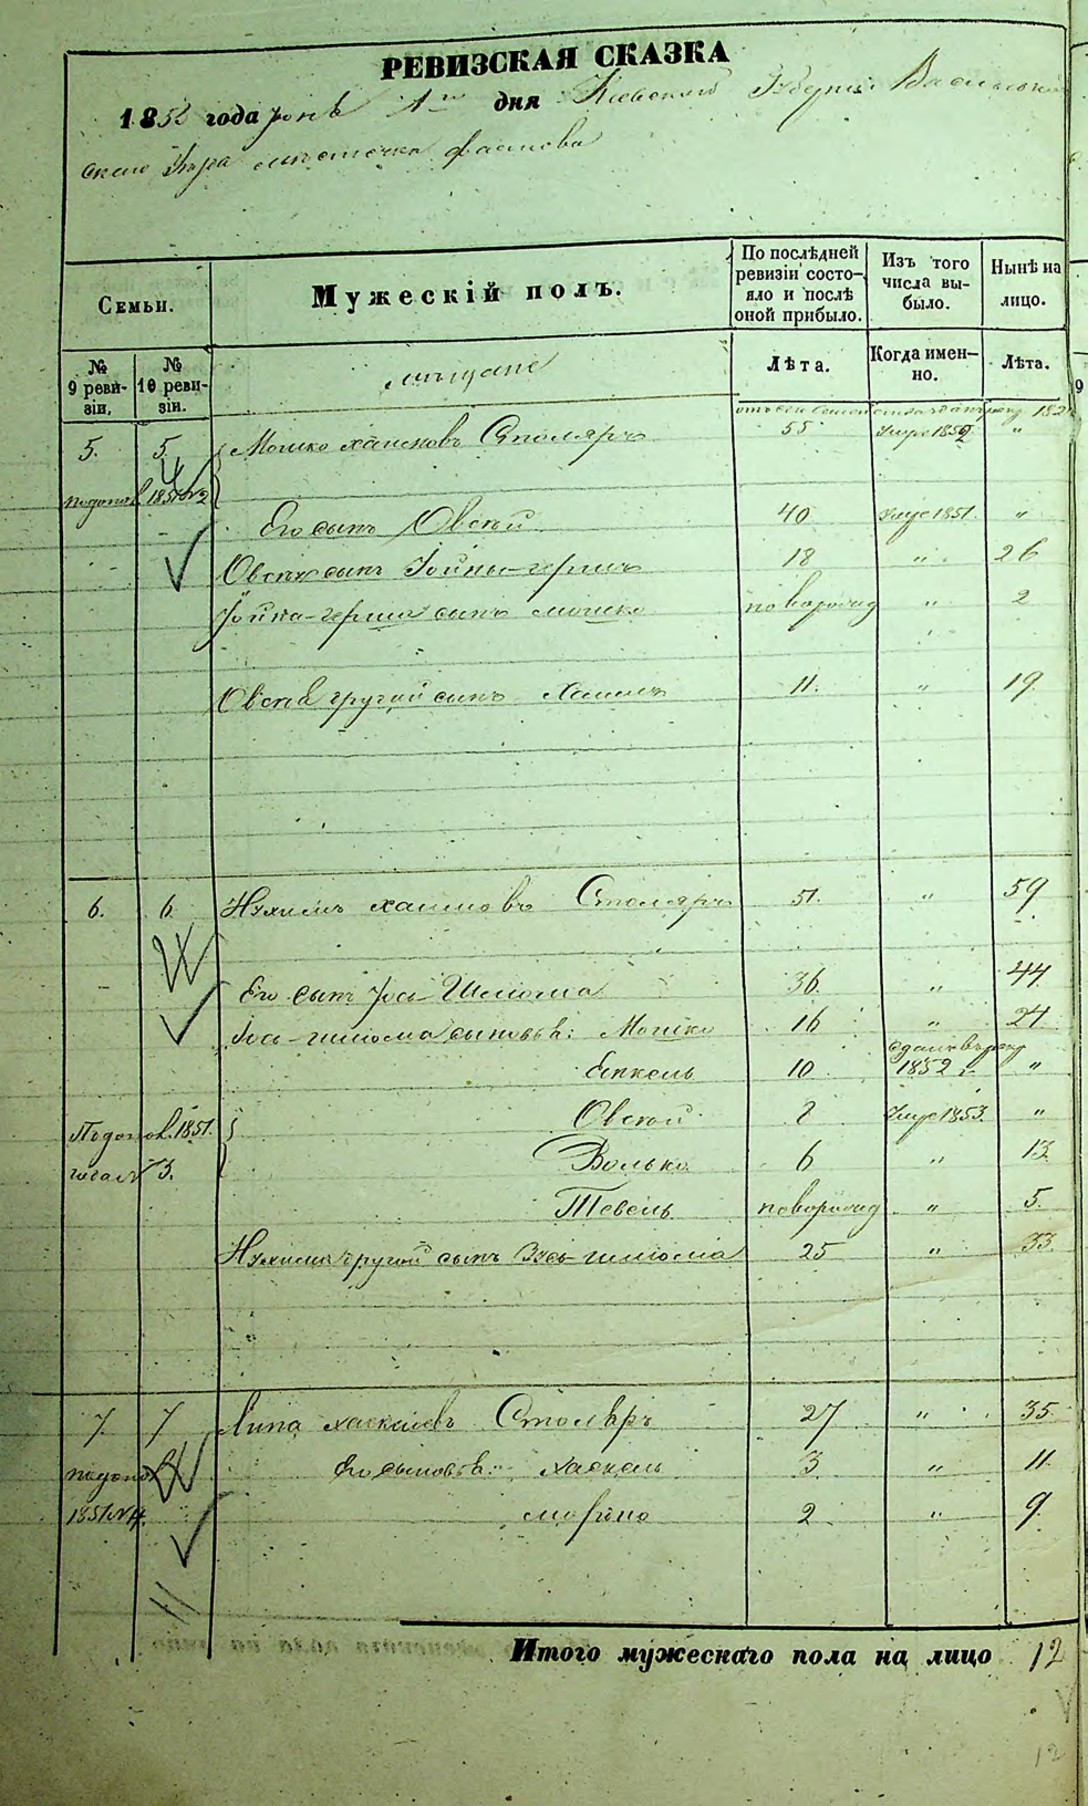 РЕВИЗСКАЯ СКАЗКА
1858 года Іюня 1го дня Кіевской Губерніи Васильков
скаго Уѣзда мѣстечка Фастова
Семьи.
Мужескій полъ.
По послѣдней ревизіи состо-яло и послѣ оной прибыло.
Изъ того числа вы-было.
Нынѣ на лицо.
№ 9 реви-зіи.
№ 10 реви-зіи.
мѣщане
Лѣта.
Когда имен-но.
Лѣта.
5. 5. Мошко Хаимовъ Столяръ 55 Умре 1852 "
1851 № 2
Его сынъ Овсей 40 Умре 1851. "
Овсея сынъ Іойны-гершъ 18 " 26
Іойна-герша сынъ Мошко новорожд " 2
Овсея другой сынъ Хаимъ 11. " 19.
6. 6 Нухимъ Хаимовъ Столяръ 51. " 59
Его сынъ Іось-Шліома 36. " 44
Іось-шліома сыновья: Мошко 16 " 24
Янкель 10 1852 г. "
Овсей 8 Умре 1853. "
1851.
3.
Волько 6 " 13
Тевель новорожд " 5.
Нухима другой сынъ Зусь-шліома 25 " 33
7. 7 Липа Хаскелевъ Столяръ 27 " 35
Его сыновья: Хаскель 3 " 11.
1851 № 4. 2 " 9.
Итого мужескаго пола на лицо 12
12